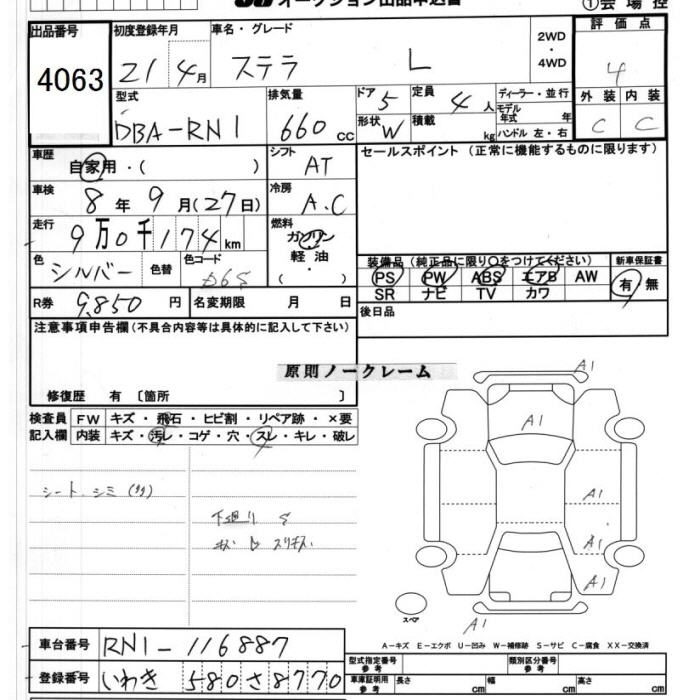 オークション出品申込書
①会場控
出品番号 4063
初度登録年月 21 4月
車名・グレード ステラ L
2WD・4WD
評価点 4
型式 DBA-RN1
排気量 660 cc
ドア 5
形状 W
定員 4 人
積載 kg
ディーラー・並行
モデル年式 年
ハンドル 左・右
外装 C
内装 C
車歴 自家用・( )
シフト AT
セールスポイント (正常に機能するものに限ります)
車検 8年 9月(27日)
冷房 A.C
走行 9万0千174km
燃料 ガソリン 軽油 ( ・ )
色 シルバー 色替
色コード D6S
装備品 (純正品に限り○をつけてください)
PS PW ABS エアB AW
SR ナビ TV カワ
新車保証書 有・無
R券 9,850円
名変期限 月 日
後日品
注意事項申告欄(不具合内容等は具体的に記入して下さい)
原則ノークレーム
修復歴 有 〔箇所 〕
検査員記入欄
FW キズ・飛石・ヒビ割・リペア跡・×要
内装 キズ・汚レ・コゲ・穴・スレ・キレ・破レ
シート シミ
下廻り S
キズ スリキズ
A1
A1
A1
A1
A1
A1
スペア
A-キズ E-エクボ U-凹み W-補修跡 S-サビ C-腐食 XX-交換済
車台番号 RN1-116887
登録番号 いわき 580 さ 8770
型式指定番号 参考
類別区分番号 参考
車庫証明用 参考 長さ cm 幅 cm 高さ cm